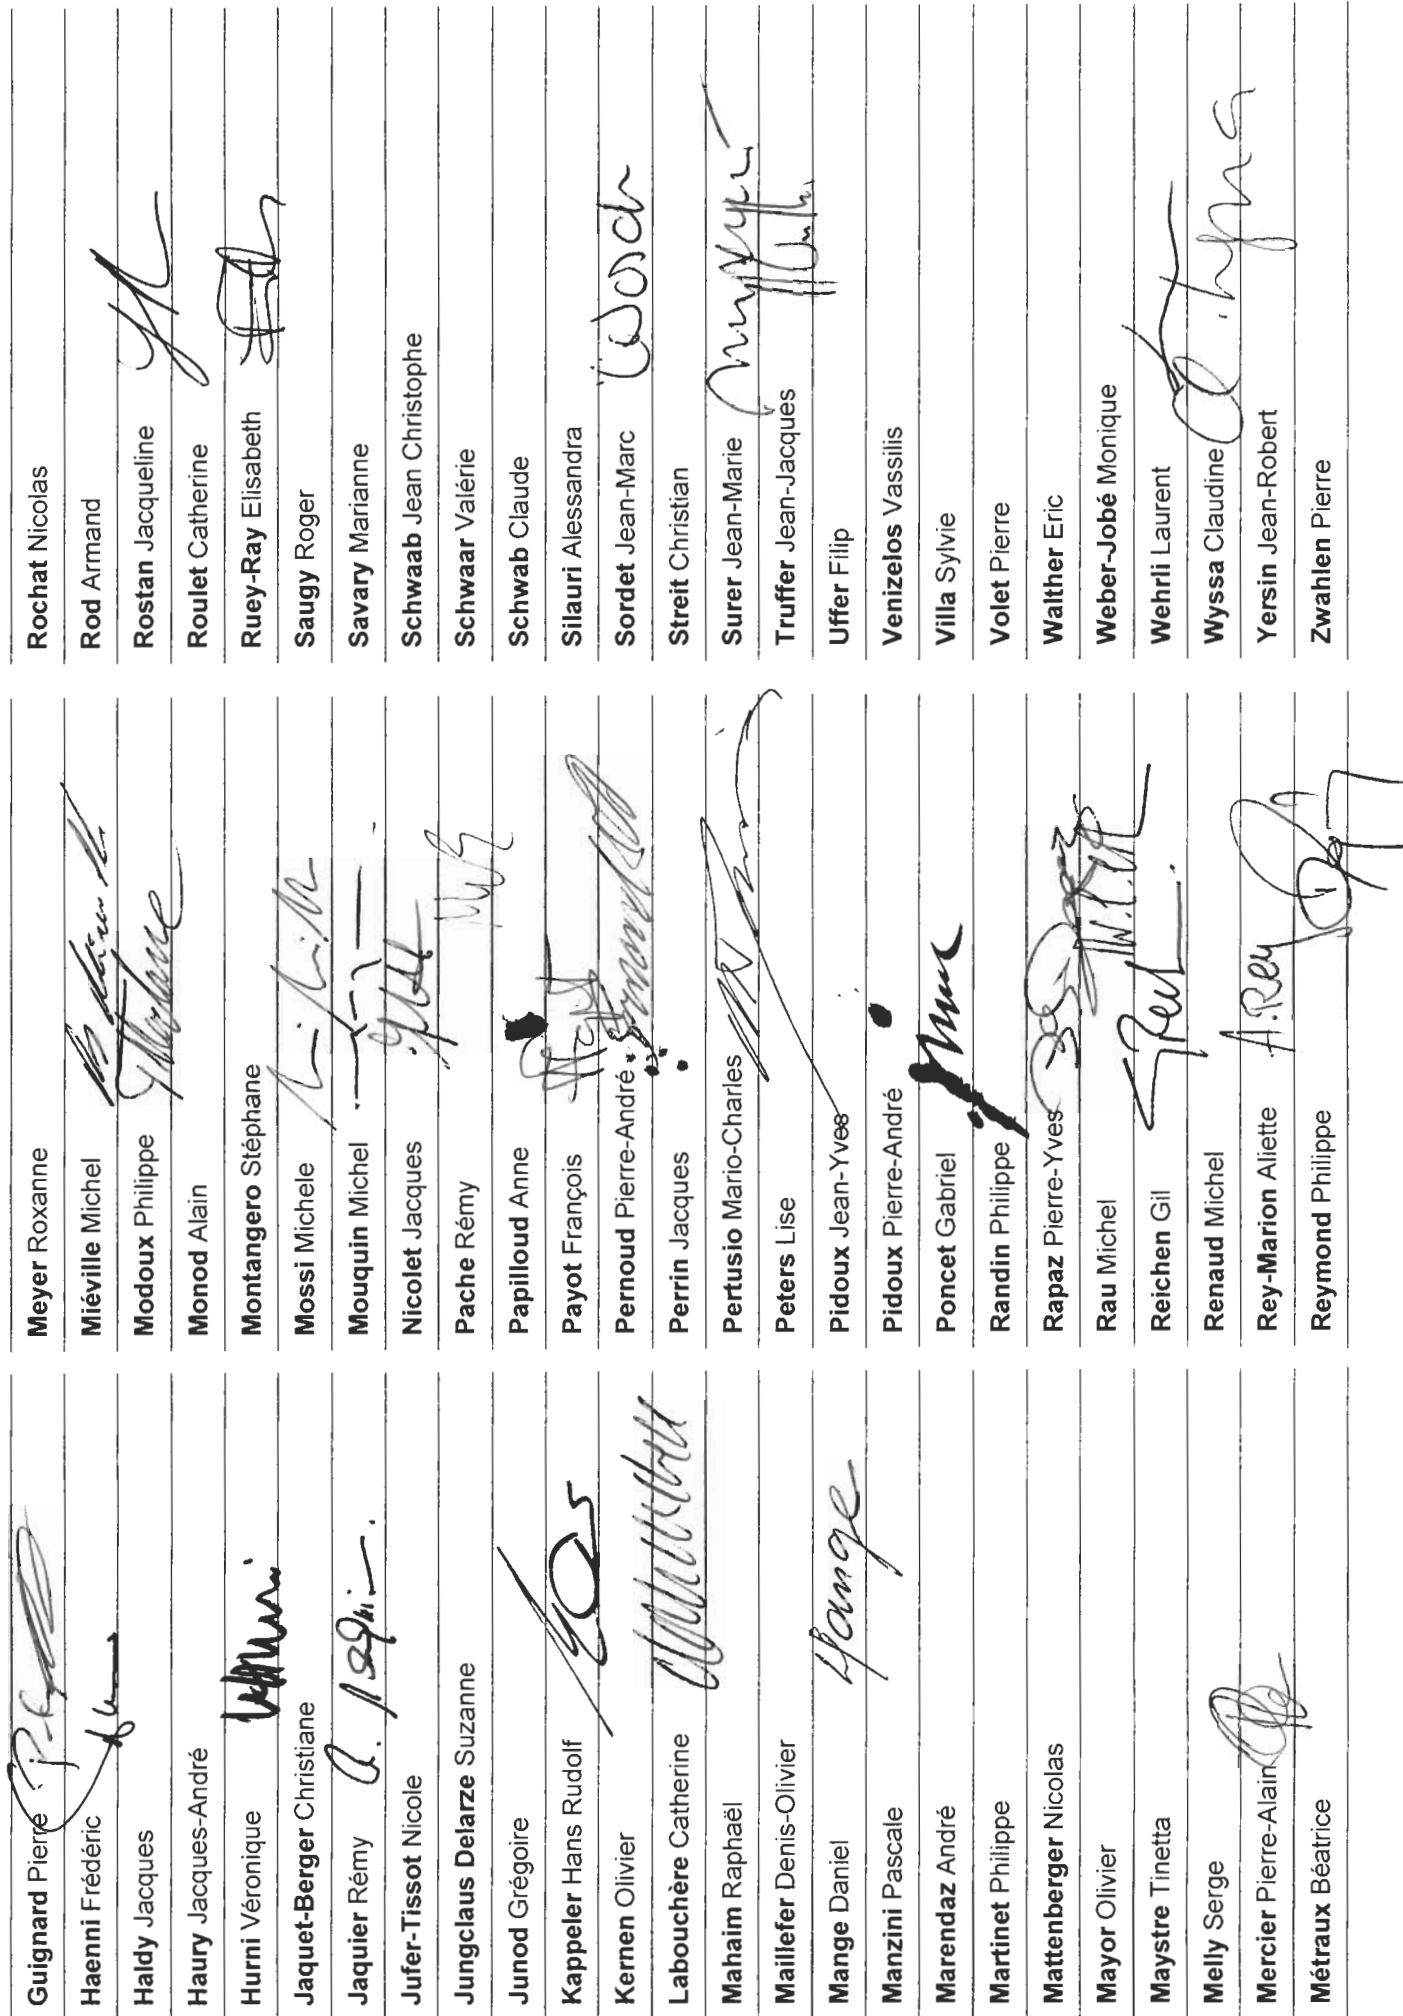 Guignard Pierre
Haenni Frédéric
Haldy Jacques
Haury Jacques-André
Hurni Véronique
Jaquet-Berger Christiane
Jaquier Rémy
Jufer-Tissot Nicole
Jungclaus Delarze Suzanne
Junod Grégoire
Kappeler Hans Rudolf
Kernen Olivier
Labouchère Catherine
Mahaim Raphaël
Maillefer Denis-Olivier
Mange Daniel
Mange
Manzini Pascale
Marendaz André
Martinet Philippe
Mattenberger Nicolas
Mayor Olivier
Maystre Tinetta
Melly Serge
Mercier Pierre-Alain
Métraux Béatrice
Meyer Roxanne
Miéville Michel
Modoux Philippe
Monod Alain
Montangero Stéphane
Mossi Michele
Mouquin Michel
Nicolet Jacques
Pache Rémy
Papilloud Anne
Payot François
Pernoud Pierre-André
Perrin Jacques
Pertusio Mario-Charles
Peters Lise
Pidoux Jean-Yves
Pidoux Pierre-André
Poncet Gabriel
Randin Philippe
Rapaz Pierre-Yves
Rau Michel
Reichen Gil
Renaud Michel
Rey-Marion Aliette
A. Rey
Reymond Philippe
Rochat Nicolas
Rod Armand
Rostan Jacqueline
Roulet Catherine
Ruey-Ray Elisabeth
Saugy Roger
Savary Marianne
Schwaab Jean Christophe
Schwaar Valérie
Schwab Claude
Silauri Alessandra
Sordet Jean-Marc
Streit Christian
Surer Jean-Marie
Truffer Jean-Jacques
Uffer Filip
Venizelos Vassilis
Villa Sylvie
Volet Pierre
Walther Eric
Weber-Jobé Monique
Wehrli Laurent
Wyssa Claudine
Yersin Jean-Robert
Zwahlen Pierre